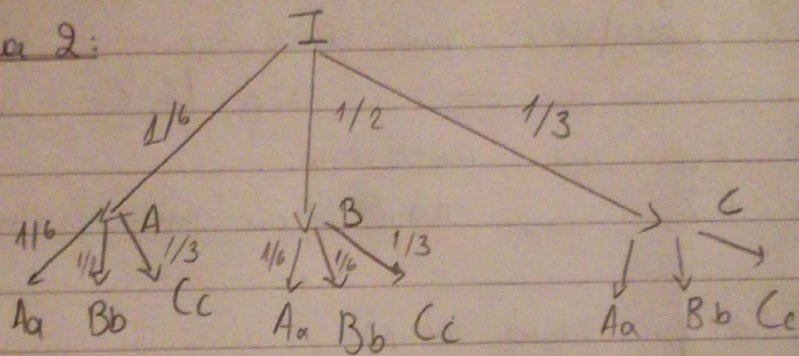 a 2:
I
1/6 1/2 1/3
A B C
1/6 1/2 1/3 1/6 1/6 1/3
Aa Bb Cc Aa Bb Cc Aa Bb Cc